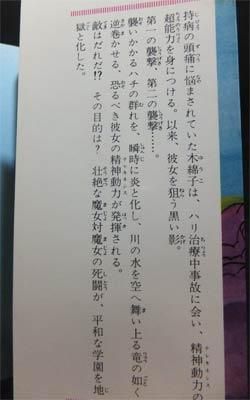 持病の頭痛に悩まされていた木綿子は、ハリ治療中事故に会い、精神動力の
超能力を身につける。以来、彼女を狙う黒い影。
第一の襲撃、第二の襲撃……。
襲いかかるハチの群れを、瞬時に炎と化し、川の水を空へ舞い上る竜の如く
逆巻かせる、恐るべき彼女の精神動力が発揮される。
敵はだれだ!? その目的は? 壮絶な魔女対魔女の死闘が、平和な学園を地
獄と化した。